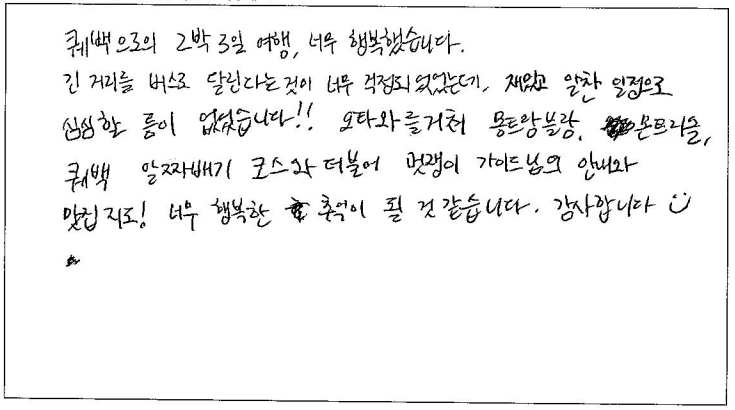 퀘백으로의 2박 3일 여행, 너무 행복했습니다.
긴 거리를 버스로 달린다는것이 너무 걱정되었었는데, 재밌고 알찬 일정으로
심심할 틈이 없었습니다!! 오타와를거쳐 몽트랑블랑, 몬트리올,
퀘백 알짜배기 코스와 더불어 멋쟁이 가이드님의 안내와
맛집지도! 너무 행복한 추억이 될 것 같습니다. 감사합니다 ☺